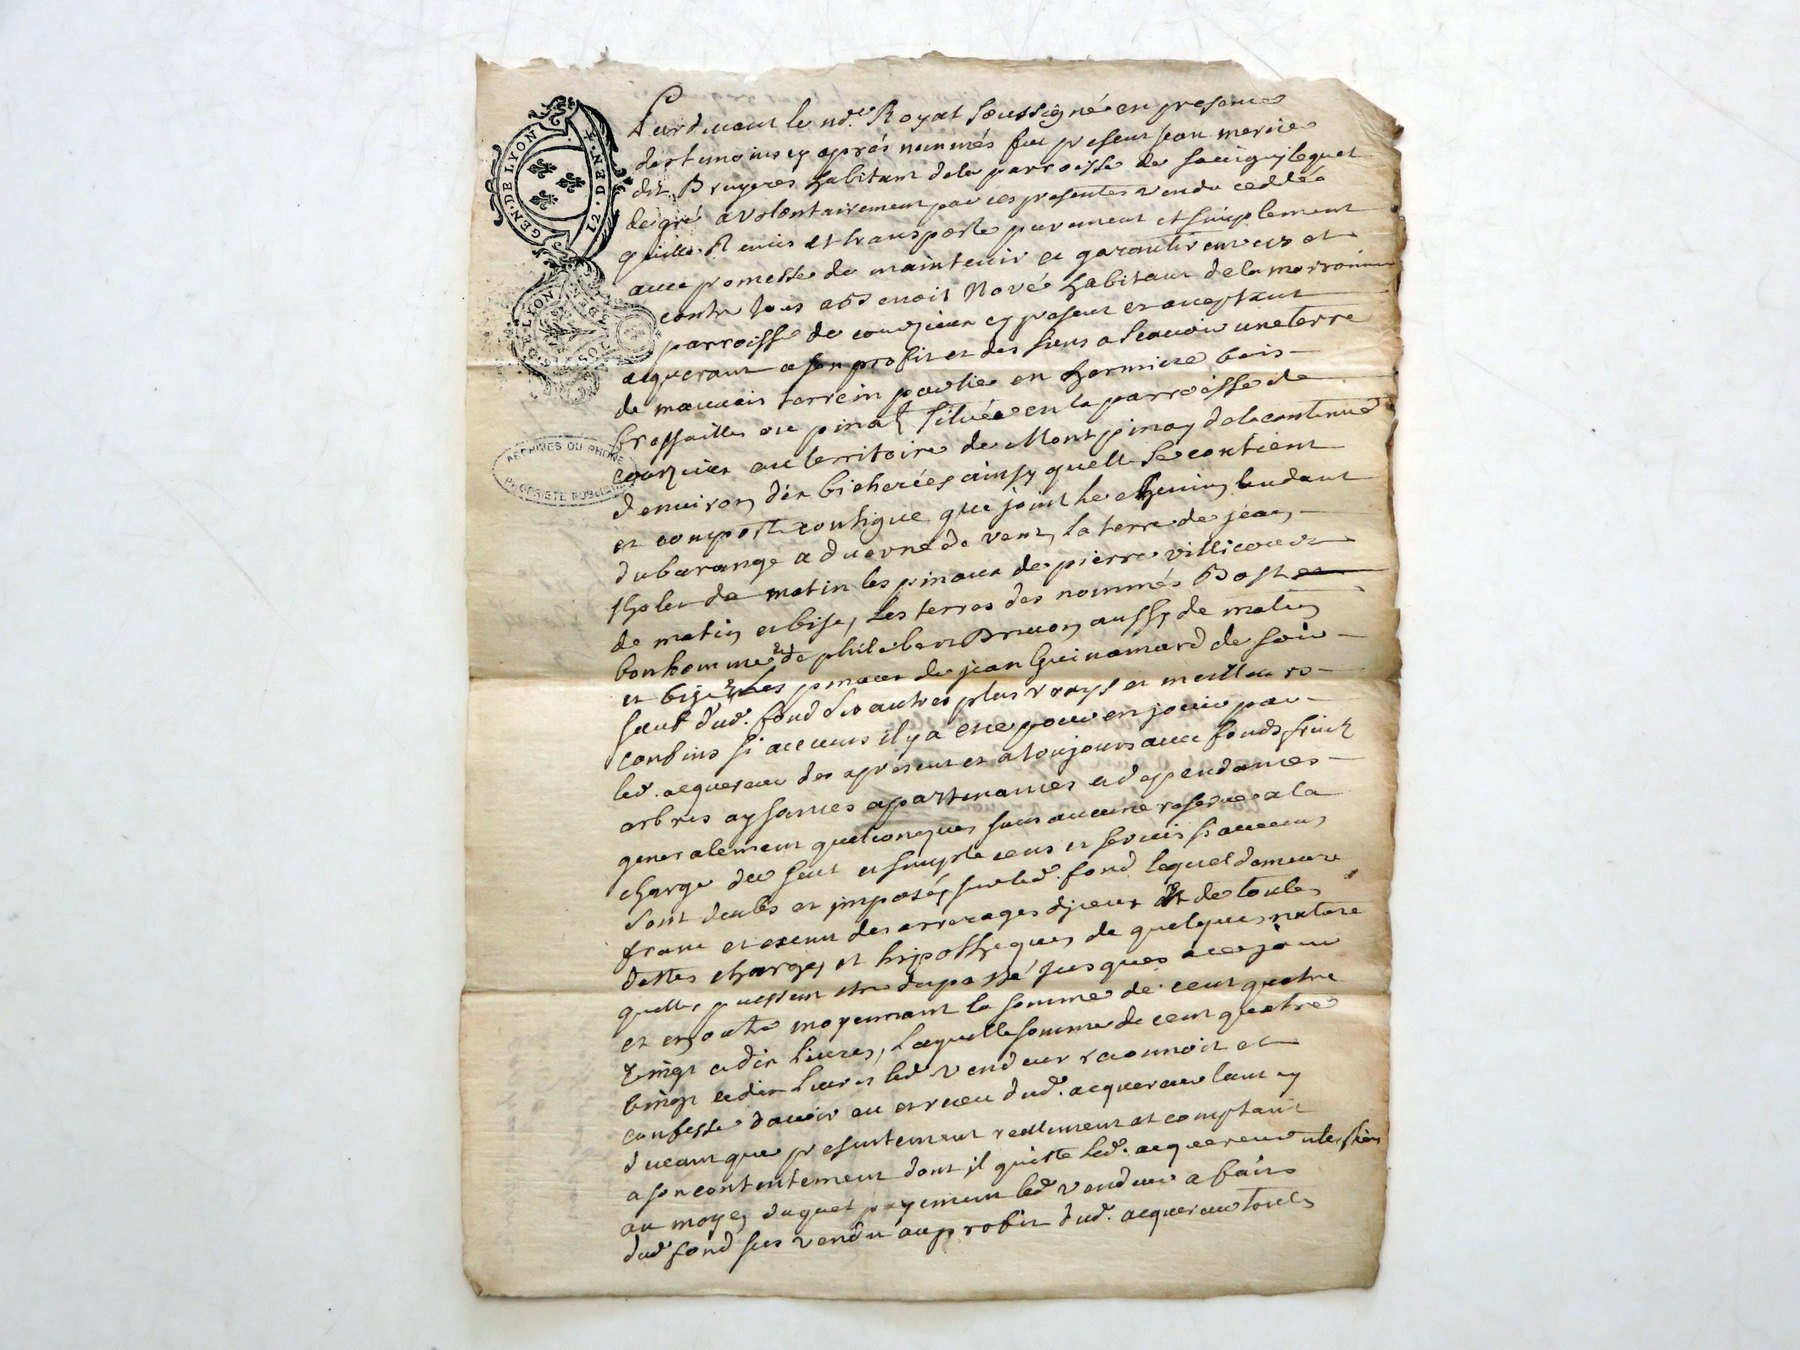 GEN·DE LYON
12·DEN·4
LYON
SOL
ARCHIVES DU RHONE
PROPRIETE PUBLIQUE
Pardevant le nore Royal Soussigné en presence
des temoins cy aprés nommés fut present jean mercie
dit Bruyeres habitant de la parroisse de Sauvigny lequel
de gré a volontairement par ces presentes vendu ceddé
quitté Remis et transporté purement et simplement
avec promesse de maintenir et garantir envers et
contre tous a benoit Nové habitant de la
parroisse de courzieu cy present et acceptant
acquerant a son profit et des siens a scavoir une terre
de mauvais terrein partie en hermiere bois
brossailles ou pinay située en la parroisse de
courzieu au territoire de Montpinay de la contenue
denviron dix bicherées ainsy quelle se contient
et comporte contigue que joint le chemin tendant
dubarange a duerne de vent, la terre de jean
de matin les pinaux de pierre villicourt
de matin et bise, les terres des nommés Bost et
bonhomme et de philebert Bruon aussy de matin
et bise et les pinaux de jean Guinamard de soir
sauf dud. fond ses autres plus vrays et meilleurs
confins si aucuns il y a et ce pour en jouir par
led. acquereur des apresent et a toujours avec fonds fruit
arbres aysances apartenances et dependances
generalement quelconques sans aucune reserve a la
charge du seul et simple cens et servis si aucuns
sont deubs et imposés sur led. fond lequel demeure
franc et exemt des arrerages djceux et de toutes
dettes charges et hipotheques de quelques nature
quelles puissent etre du passé jusques a ce jour
et en outre moyennant la somme de cent quatre
vingt et dix livres, laquelle somme de cent quatre
vingt et dix livres led. vendeur reconnoit et
confesse davoir eu et recu dud. acquereur tant cy
devant que presentement reellement et comptant
a son contentement dont il quitte led. acquereur et les siens
au moyen duquel payement led. vendeur a fait
dud. fond sus vendu au profit dud. acquereur toutes